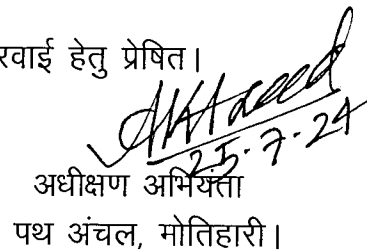 रवाई हेतु प्रेषित।
25.7.24
अधीक्षण अभियंता
पथ अंचल, मोतिहारी।